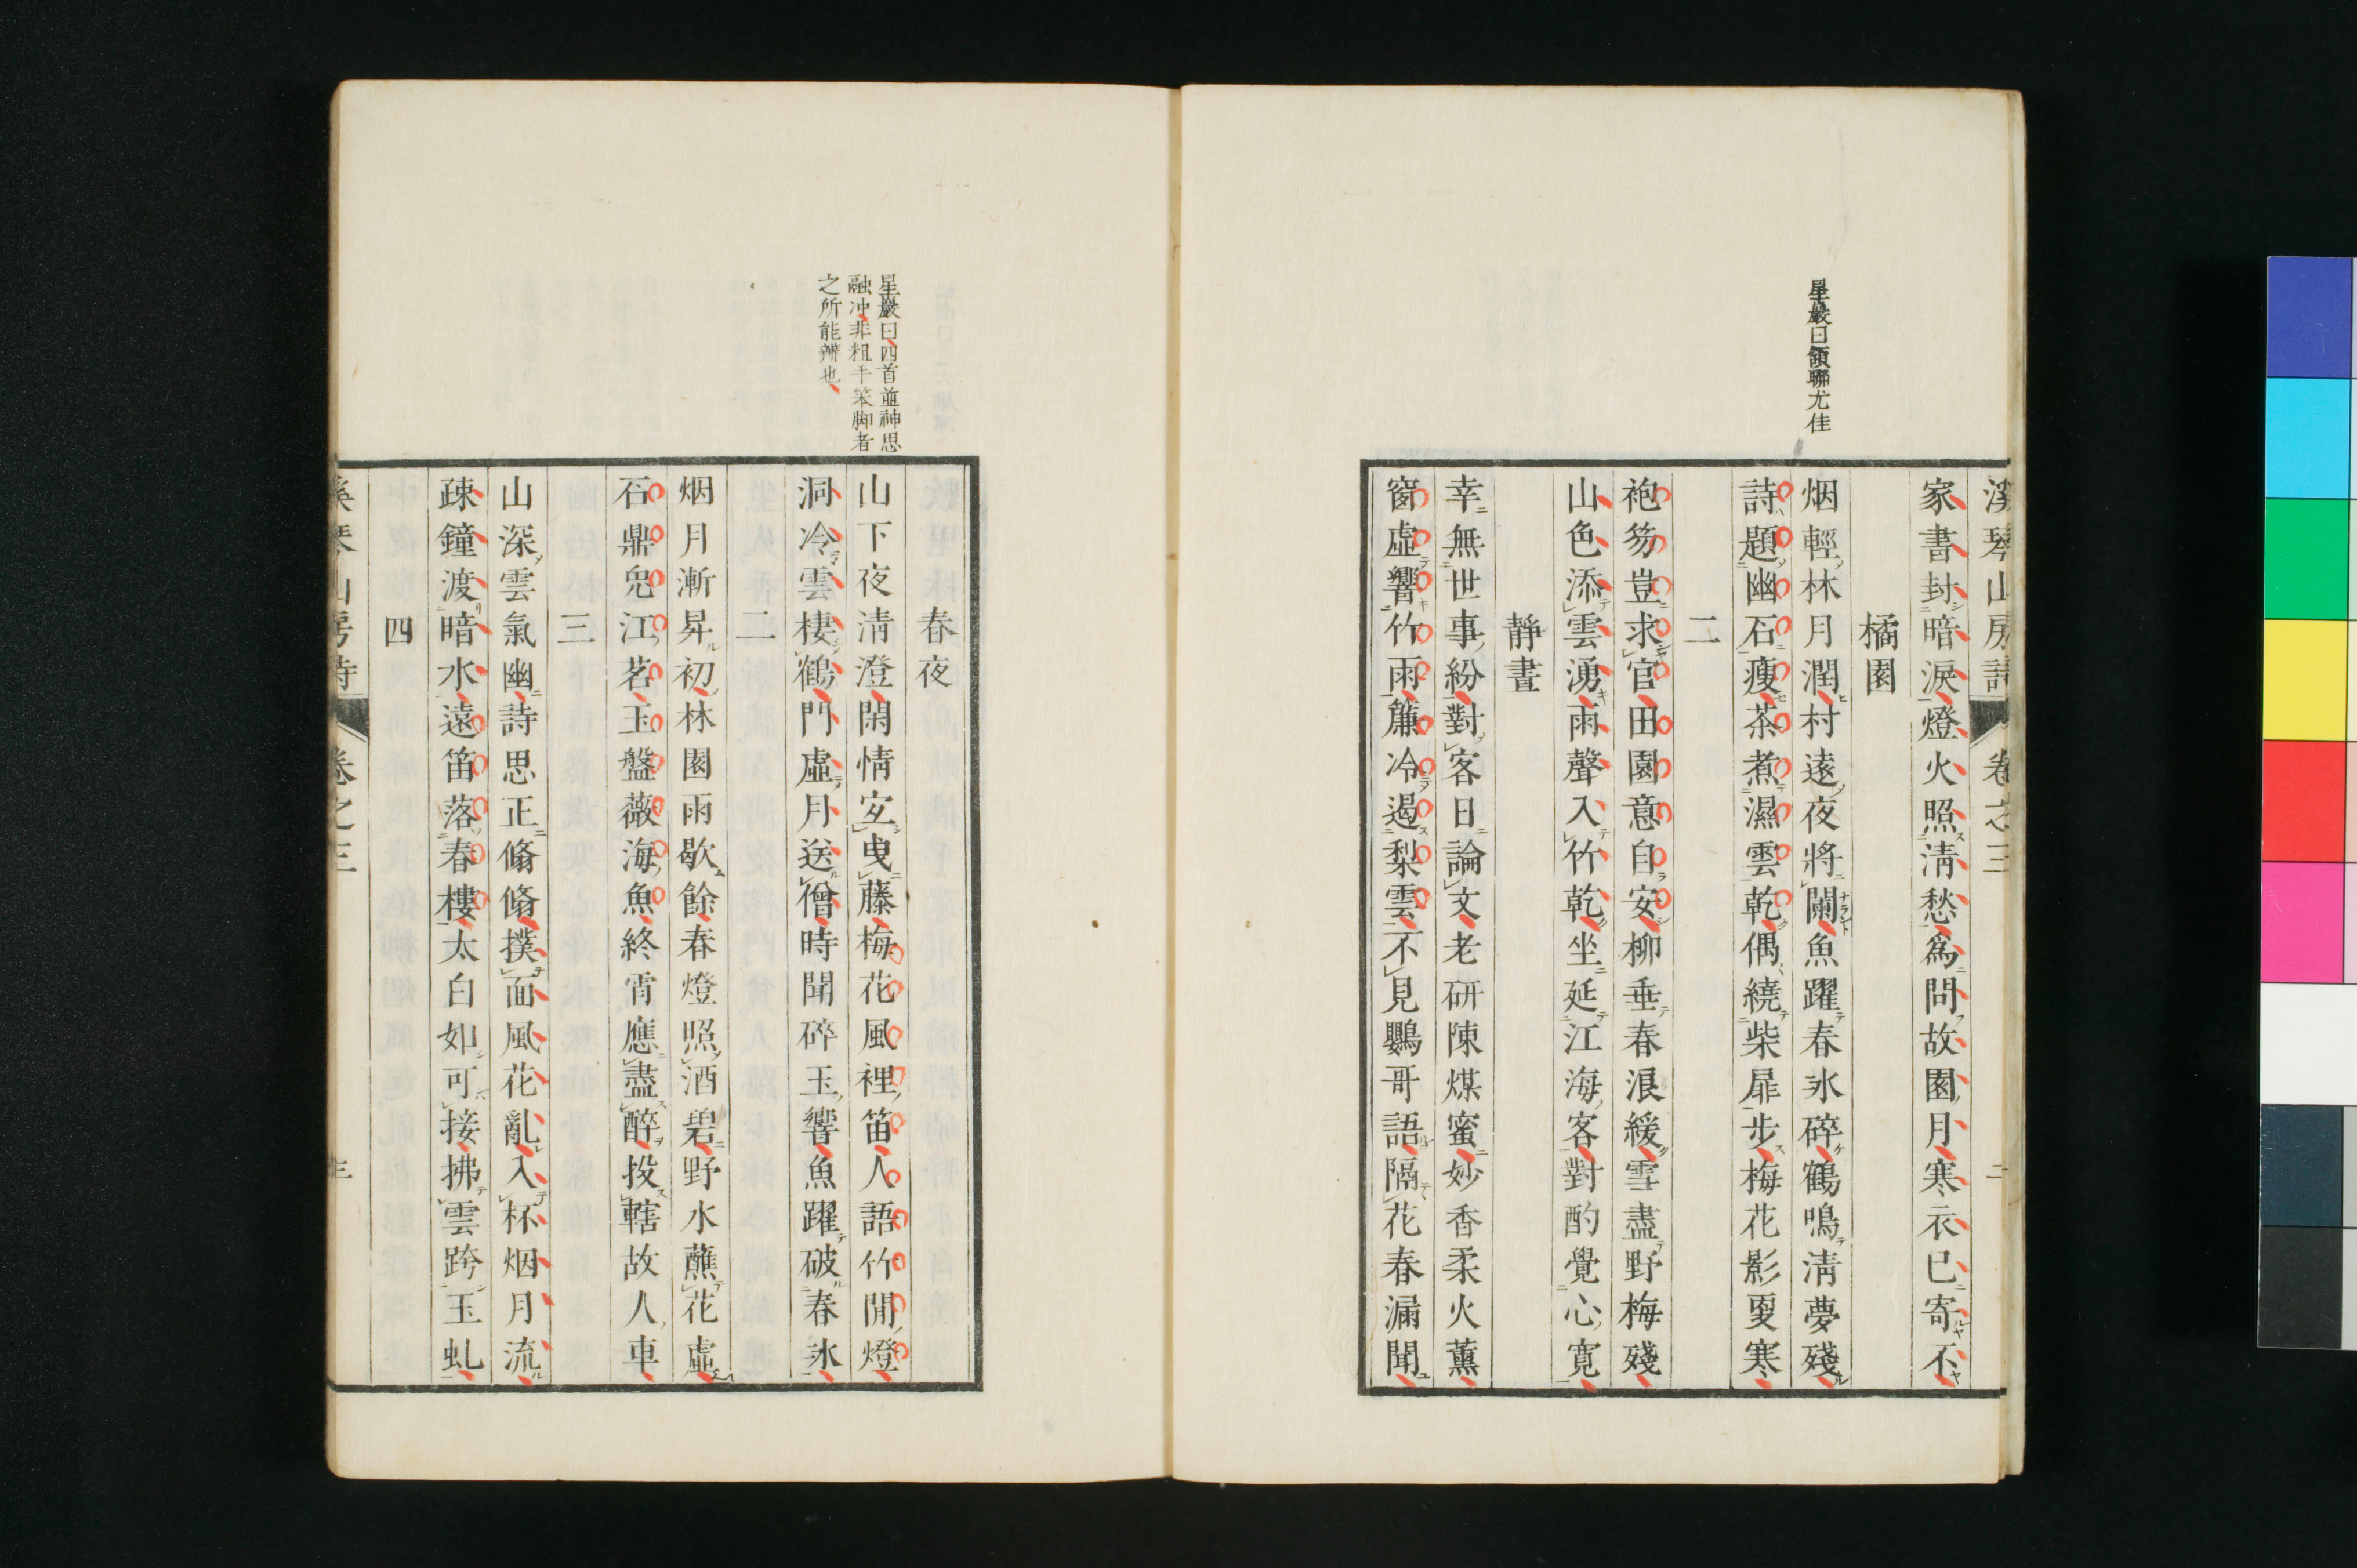 星巖曰領聯尤佳
溪琴山房詩 卷之三 二
家書封暗淚燈火照淸愁爲問故園月寒衣已寄不
橘園
烟輕林月潤村遠夜將闌魚躍春氷碎鶴鳴淸夢殘
詩題幽石瘦茶煮濕雲乾偶繞柴扉步梅花影更寒
二
袍笏豈求官田園意自安柳垂春浪緩雪盡野梅殘
山色添雲湧雨聲入竹乾坐延江海客對酌覺心寬
靜晝
幸無世事紛對客日論文老硏陳煤蜜妙香柔火薰
窗虛響竹雨簾冷遏梨雲不見鸚哥語隔花春漏聞
星巖曰四首並神思
融冲非粗干笨脚者
之所能辨也
春夜
山下夜淸澄閑情安曳藤梅花風裡笛人語竹間燈
洞冷雲棲鶴門虛月送僧時聞碎玉響魚躍破春氷
二
烟月漸昇初林園雨歇餘春燈照酒碧野水蘸花虛
石鼎兒江茗玉盤薇海魚終霄應盡醉投轄故人車
三
山深雲氣幽詩思正翛翛撲面風花亂入杯烟月流
疎鐘渡暗水遠笛落春樓太白如可接拂雲跨玉虬
四
溪琴山房詩 卷之三 三